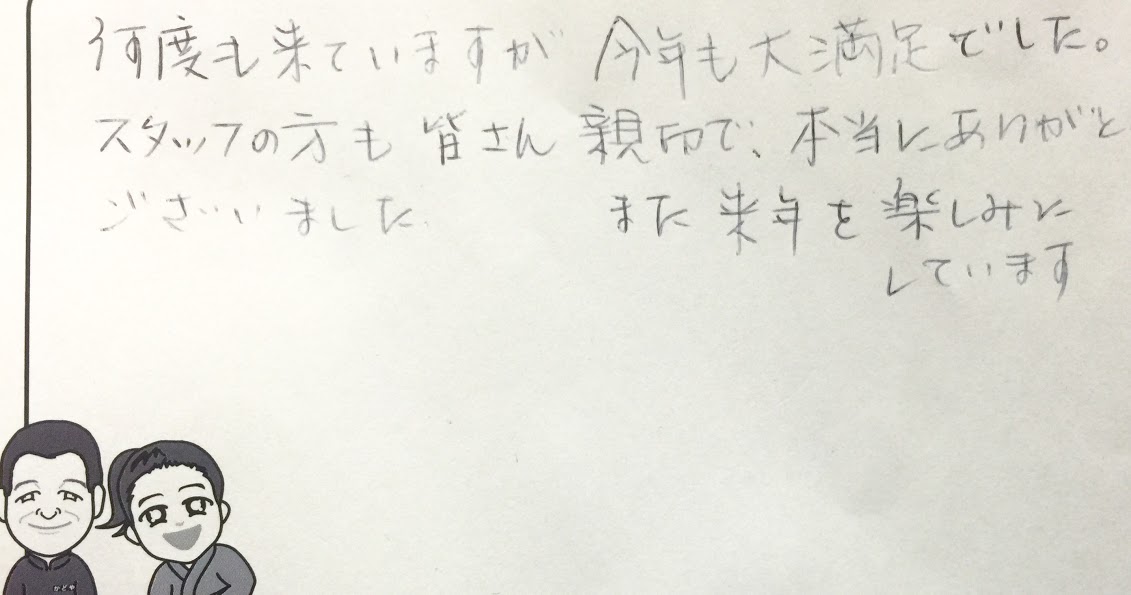 何度も来ていますが 今年も大満足でした。
スタッフの方も 皆さん 親切で、本当にありがと
ございました　また 来年を 楽しみに
しています
かどや